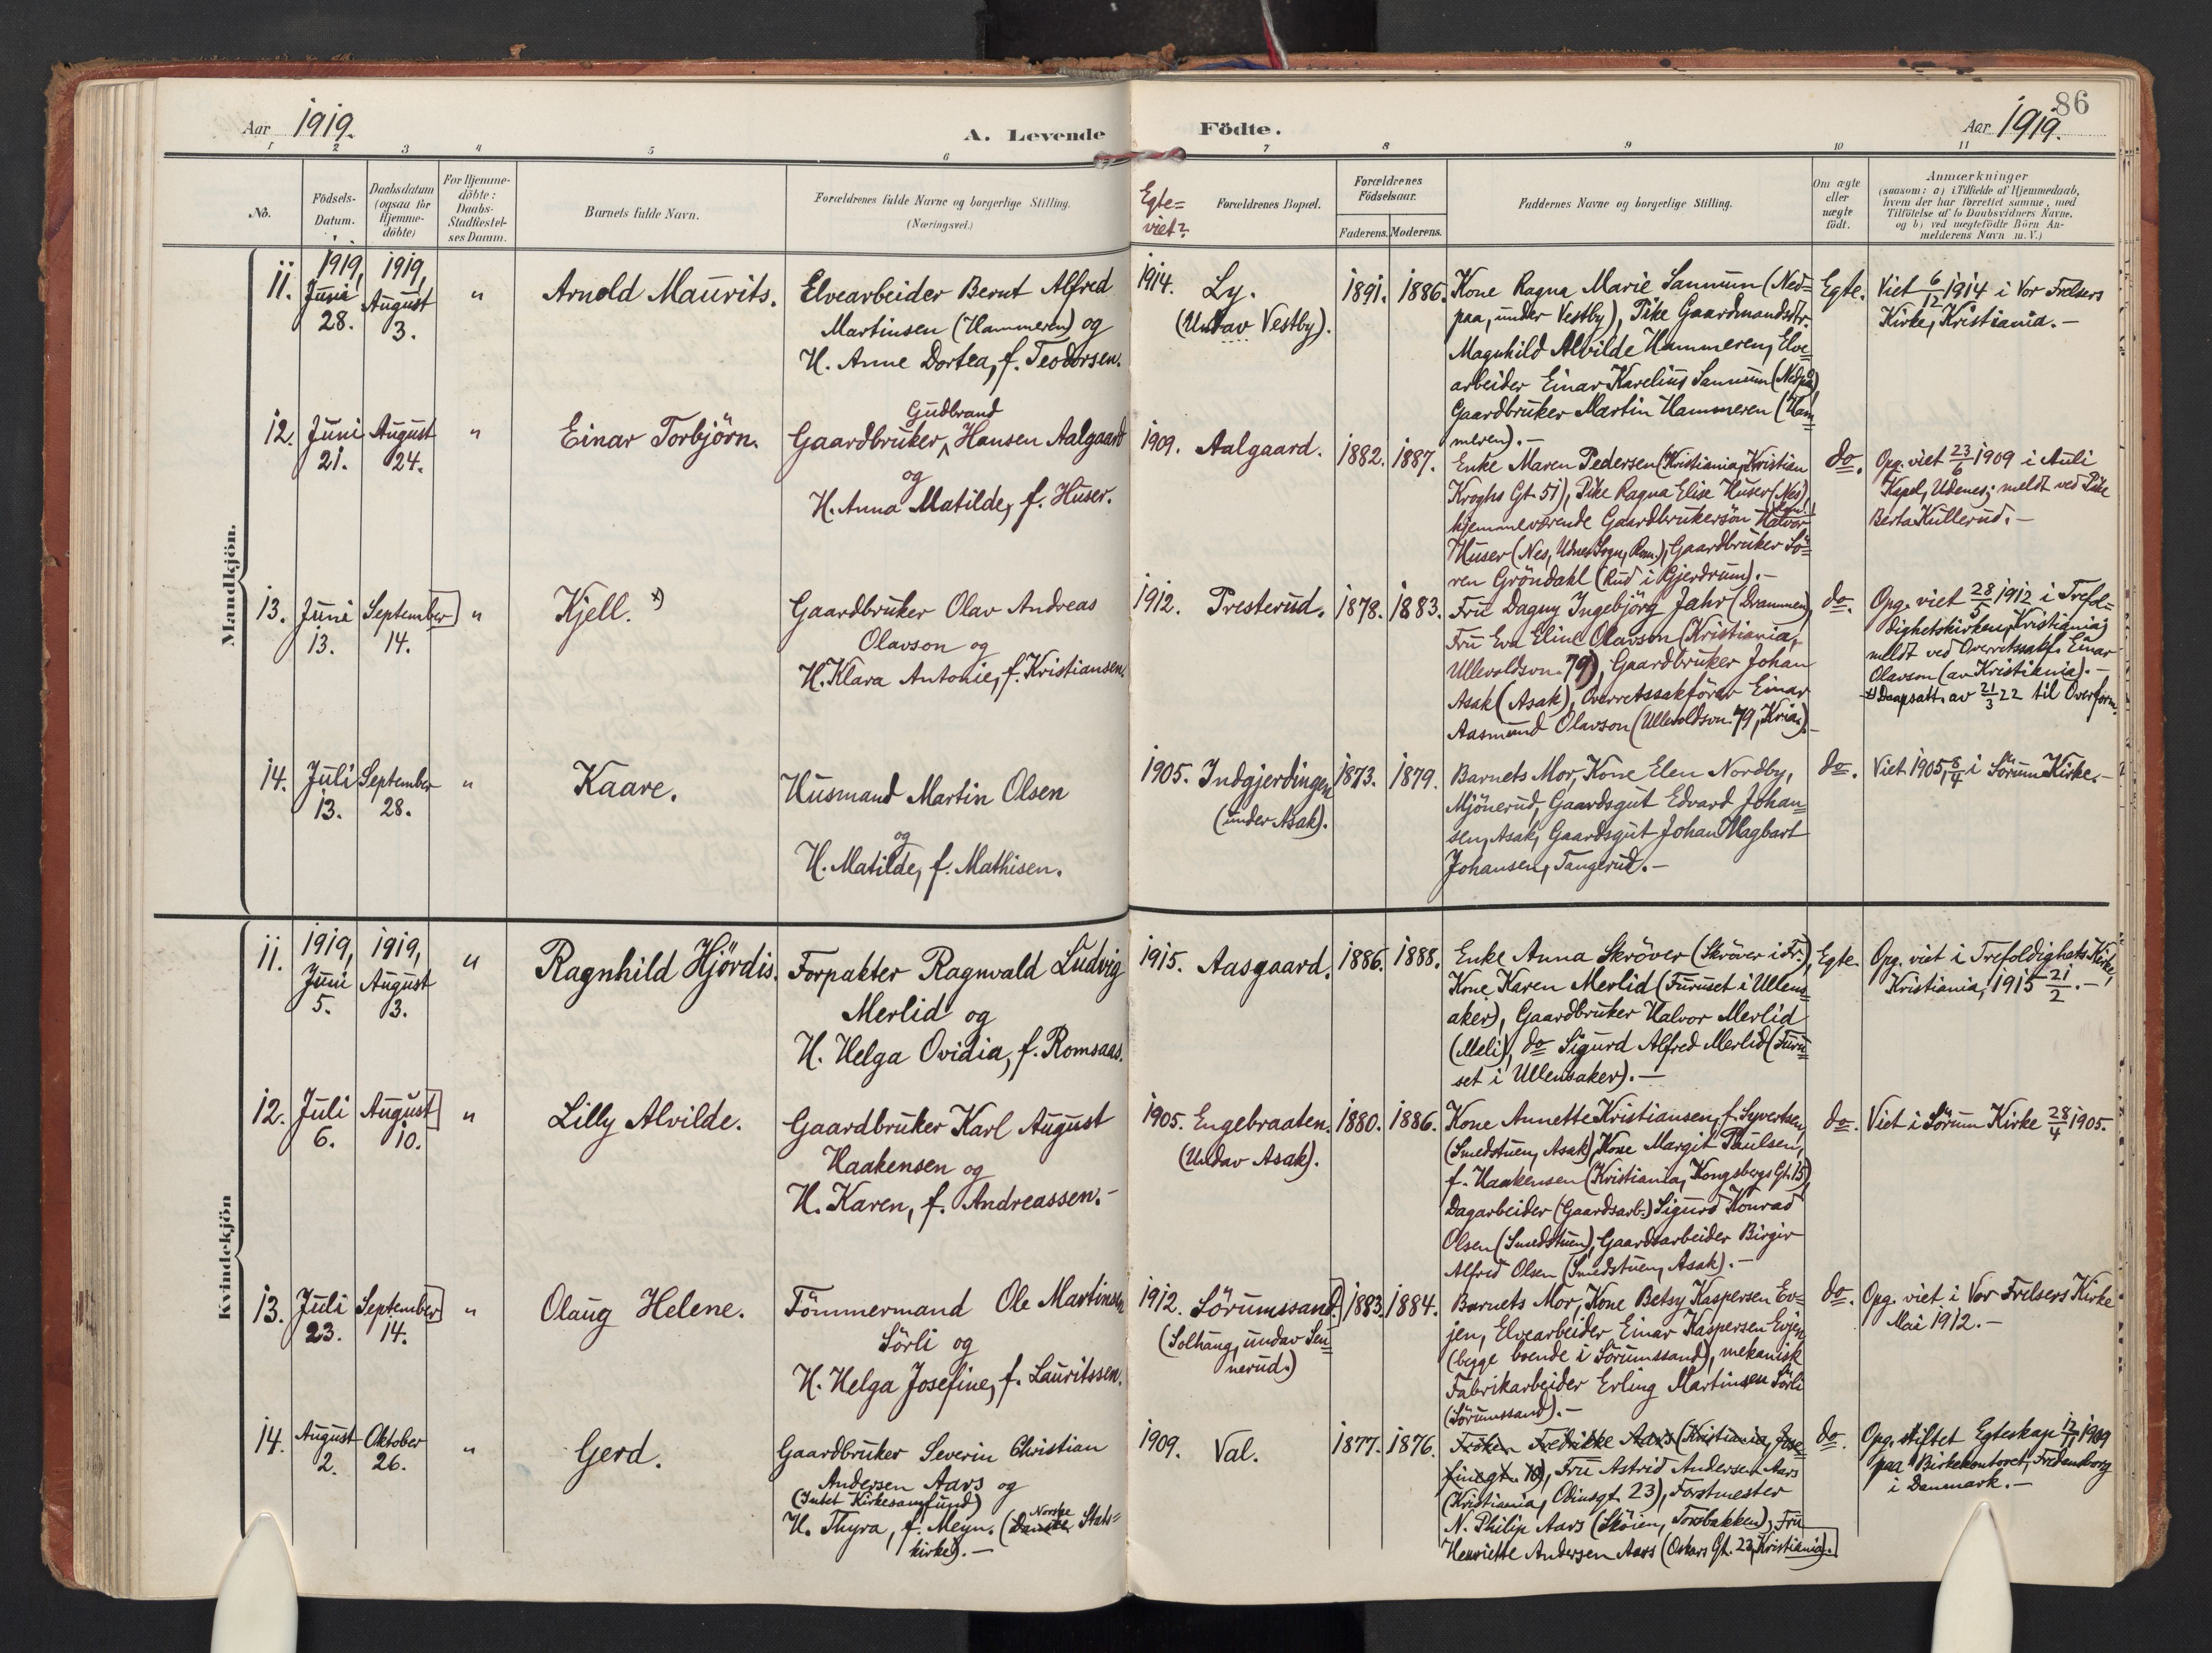 86
Aar 1919.
A. Levende
Födte.
Aar 1919.
1 2 3 4 5 6 7 8 9 10 11
No.
Födsels-
Datum.
Daabsdatum
(ogsaa for
Hjemme-
döbte)
For Hjemme-
döbte:
Daabs-
Stadfæstel-
ses Datum.
Barnets fulde Navn.
Forældrenes fulde Navne og borgerlige Stilling.
(Næringsvei.)
Egte=
viet?
Forældrenes Bopæl.
Forældrenes
Födselsaar.
Faderens. Moderens.
Faddernes Navne og borgerlige Stilling.
Om ægte
eller
uægte
födt.
Anmærkninger
(saasom: a) i Tilfælde af Hjemmedaab,
hvem der har forrettet samme, med
Tilföielse af to Daabsvidners Navne,
og b) ved uægtefödte Börn An-
melderens Navn m. V.)
Mandkjön.
11.
1919,
Juni
28.
1919,
August
3.
"
Arnold Maurits.
Elvearbeider Bernt Alfred
Martinsen (Hammeren) og
H. Anne Dortea, f. Teodorsen.
1914.
Ly.
(Undav Vestby).
1891.
1886.
Kone Ragna Marie Sannum (Ned=
paa, under Vestby), Pike Gaardmandsdtr.
Magnhild Alvilde Hammeren, Elve=
arbeider Einar Karelius Sannum (Nedpaa)
Gaardbruker Martin Hammeren (Ham
meren).—
Egte.
Viet 6/12 1914 i Vor Frelsers
Kirke, Kristiania.—
12.
Juni
21.
August
24.
"
Einar Torbjörn.
Gudbrand
Gaardbruker Hansen Aalgaard
og
H. Anna Matilde, f. Huser.
1909.
Aalgaard.
1882.
1887.
Enke Maren Pedersen (Kristiania, Kristian
Kroghs Gt. 51), Pike Ragna Elise Huser (Nes),
hjemmeværende Gaardbrukersön Halvor
Huser (Nes, Udnes Sogn, Rom.), Gaardbruker Sö=
ren Gröndahl (Rud i Gjerdrum).—
do.
Opg. viet 23/6 1909 i Auli
Kapel, Udenes; meldt ved Pike
Berta Kullerud.—
13.
Juni
13.
September
14.
"
Kjell. x)
Gaardbruker Olav Andreas
Olavson og
H. Klara Antonie, f. Kristiansen.
1912.
Presterud.
1878.
1883.
Fru Dagny Ingebjörg Jahr (Drammen),
Fru Eva Eline Olavson (Kristiania,
Ullevoldsvn. 79), Gaardbruker Johan
Asak (Asak), Overretssakförer Einar
Aasmund Olavson (Ullevoldsvn. 79, Kria.).
do.
Opg. viet 28/5 1912 i Trefol=
dighetskirken, Kristiania;
meldt ved Overretssakf. Einar
Olavson (av Kristiania).—
x) Daapsatt. av 21/3 22 til Overform.
14.
Juli
13.
September
28.
"
Kaare.
Husmand Martin Olsen
og
H. Matilde, f. Mathisen.
1905.
Indgjerdingen
(under Asak).
1873.
1879.
Barnets Mor, Kone Elen Nordby,
Mjönerud, Gaardsgut Edvard Johan=
sen, Asak, Gaardsgut Johan Magbart
Johansen, Tangerud.—
do.
Viet 1905 8/4 i Sörum Kirke.—
Kvindekjön
11.
1919,
Juni
5.
1919,
August
3.
"
Ragnhild Hjördis.
Forpakter Ragnvald Ludvig
Merlid og
H. Helga Ovidia, f. Romsaas.
1915.
Aasgaard.
1886.
1888.
Enke Anna Skröver (Skröver i Fr.),
Kone Karen Merlid (Furuset i Ullens=
aker), Gaardbruker Halvor Merlid
(Meli), do Sigurd Alfred Merlid (Furu=
set i Ullensaker).—
Egte.
Opg. viet i Trefoldighets Kirke,
Kristiania, 1915 21/2.—
12.
Juli
6.
August
10.
"
Lilly Alvilde.
Gaardbruker Karl August
Haakensen og
H. Karen, f. Andreassen.—
1905.
Engebraaten.
(Undav Asak).
1880.
1886.
Kone Annette Kristiansen, f. Syvertsen,
(Smedstuen, Asak), Kone Margit Paulsen,
f. Haakensen (Kristiania, Kongsbergs Gt. 15),
Dagarbeider (Gaardsarb.) Sigurd Konrad
Olsen (Smedstuen), Gaardsarbeider Birgir
Alfred Olsen (Smedstuen, Asak).—
do.
Viet i Sörum Kirke 28/4 1905.
13.
Juli
23.
September
14.
"
Olaug Helene.
Tömmermand Ole Martinsen
Sörli og
H. Helga Josefine, f. Lauritssen.
1912.
Sörumssand.
(Solhaug, undav Sen=
nerud.)
1883.
1884.
Barnets Mor, Kone Betsy Kaspersen Ev=
jen, Elvearbeider Einar Kaspersen Evjen
(begge boende i Sörumssand), mekanisk
Fabrikarbeider Erling Martinsen Sörli
(Sörumssand).—
do.
Opg. viet i Vor Frelsers Kirke
Mai 1912.—
14.
August
2.
Oktober
26.
"
Gerd.
Gaardbruker Severin Christian
Andersen Aars og
(Intet Kirkesamfund)
H. Thyra, f. Meyn. (Danske Norske Stats=
kirke).—
1909.
Val.
1877.
1876.
Fröken Fredrikke Aars (Kristiania, Jose
finegt. 10), Fru Astrid Andersen Aars
(Kristiania, Odinsgt. 23), Forstmester
N. Philip Aars (Sköien, Torsbakken), Fru
Henriette Andersen Aars (Oskars Gt. 23, Kristiania).
do.
Opg. stiftet Egteskap 17/11 1909
paa Birkekontoret, Fredensborg
i Danmark.—